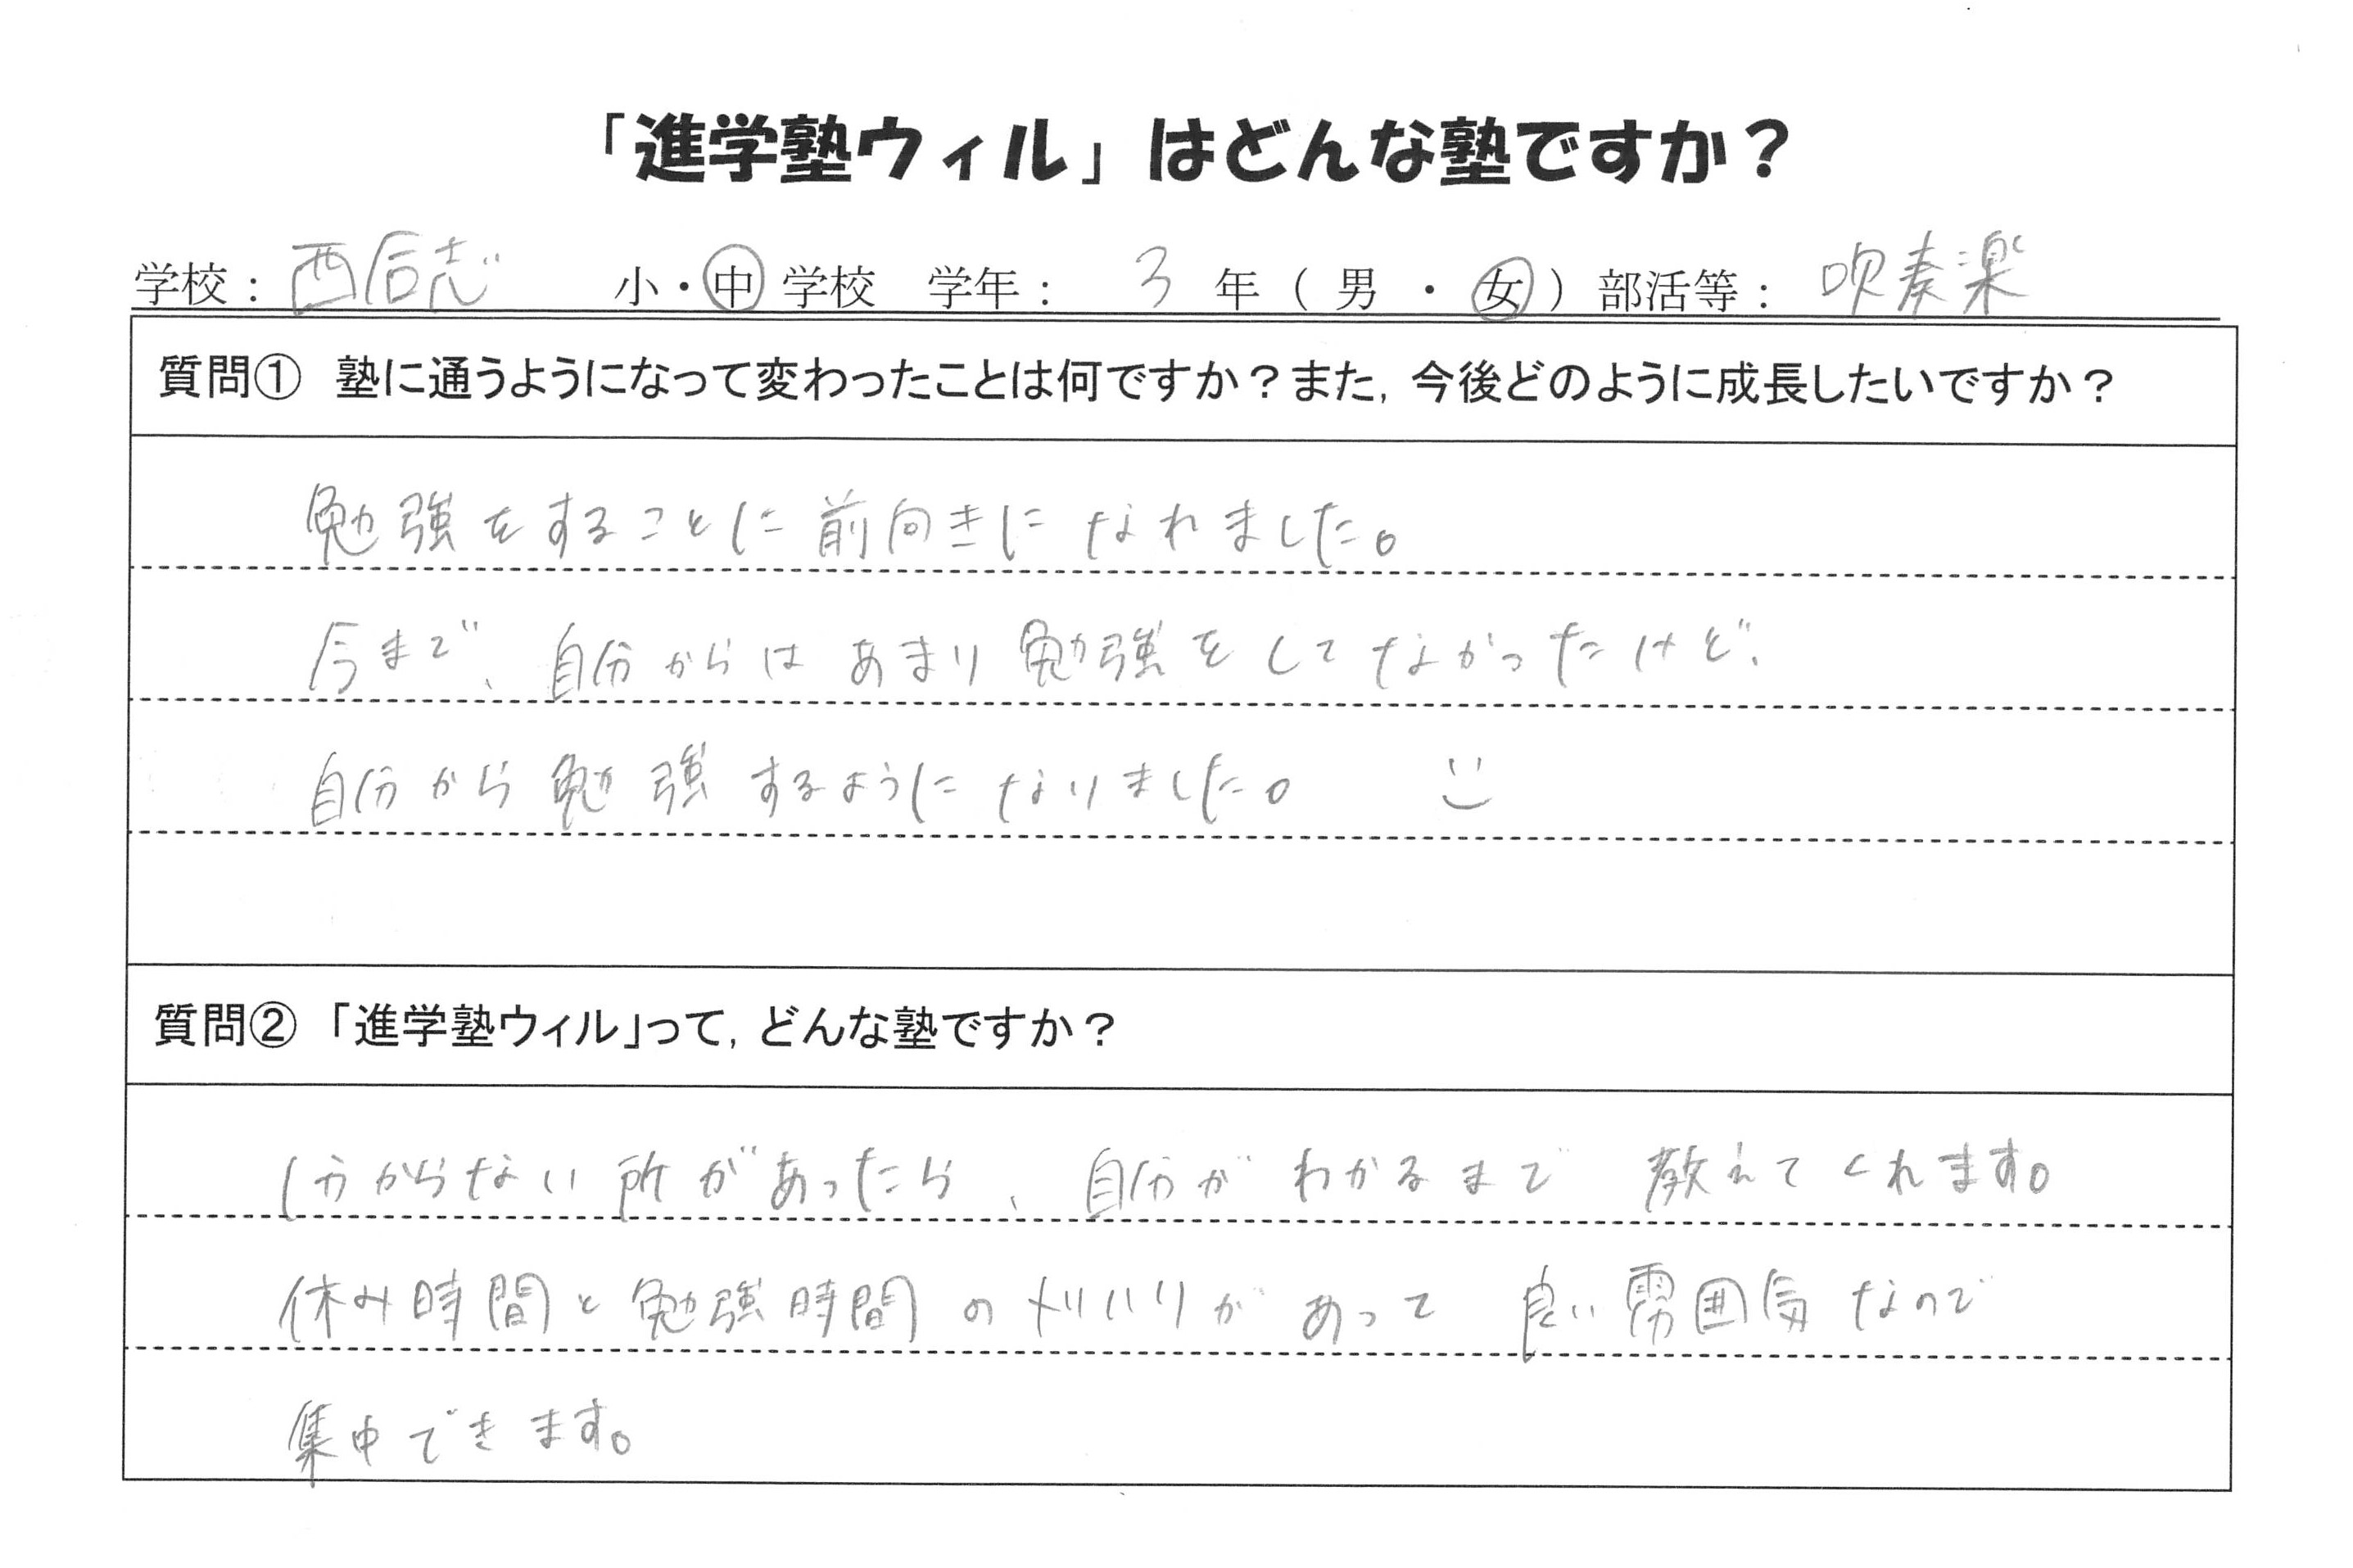 「進学塾ウィル」はどんな塾ですか？
学校： 西合志 小・中 学校 学年： 3 年（ 男 ・ 女 ）部活等： 吹奏楽
質問① 塾に通うようになって変わったことは何ですか？また，今後どのように成長したいですか？
勉強をすることに前向きになれました。
今まで、自分からはあまり勉強をしてなかったけど、
自分から勉強するようになりました。
質問② 「進学塾ウィル」って，どんな塾ですか？
分からない所があったら、自分がわかるまで 教えてくれます。
休み時間と勉強時間のメリハリがあって 良い雰囲気なので
集中できます。